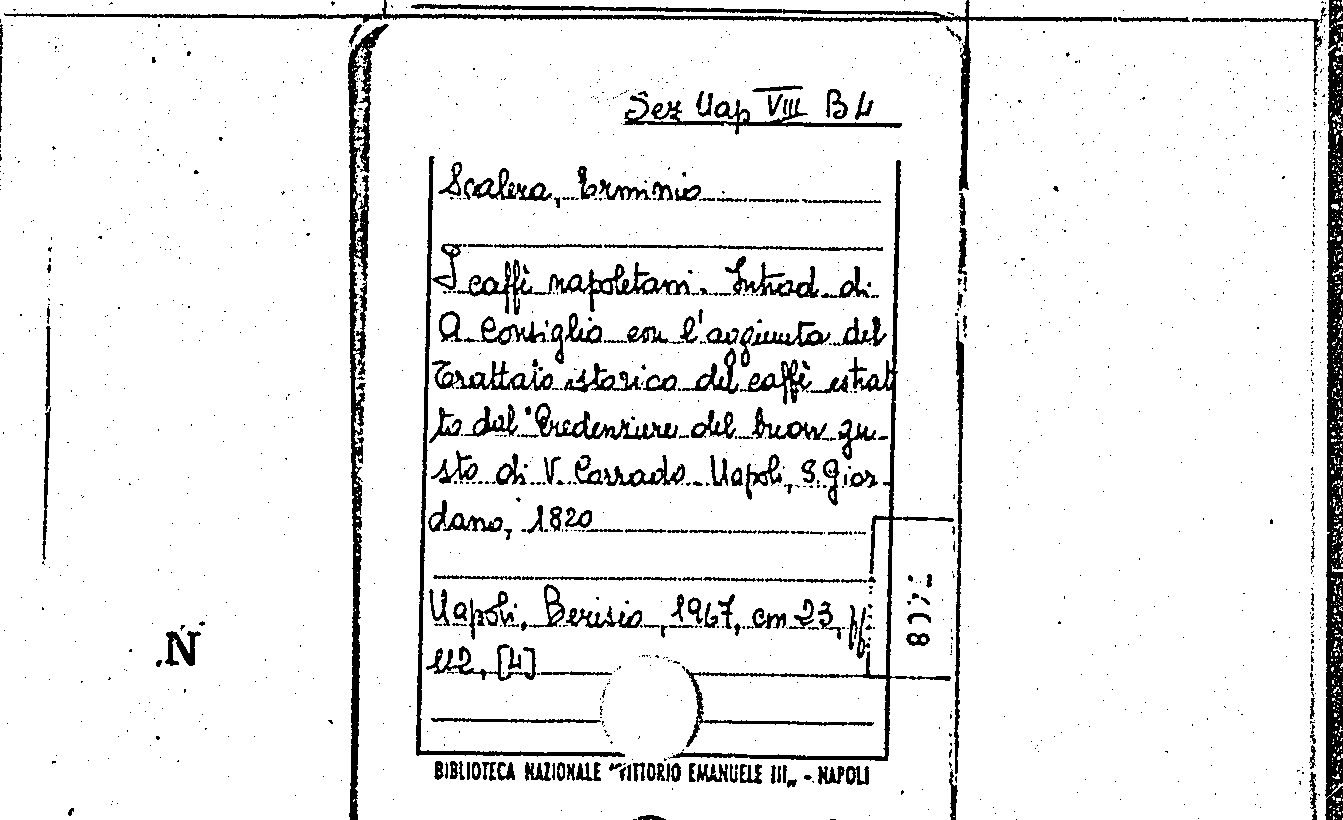 Sez Nap VIII B 4
Scalera, Erminio
I caffè napoletani. Introd. di
A. Consiglio con l'aggiunta del
Trattato storico del caffè estrat
to dal "Credenziere del buon gu-
sto di V. Corrado. Napoli, S. Gior-
dano, 1820
Napoli, Berisio, 1967, cm 23, pp.
112, [4]
N
BIBLIOTECA NAZIONALE "VITTORIO EMANUELE III„ - NAPOLI